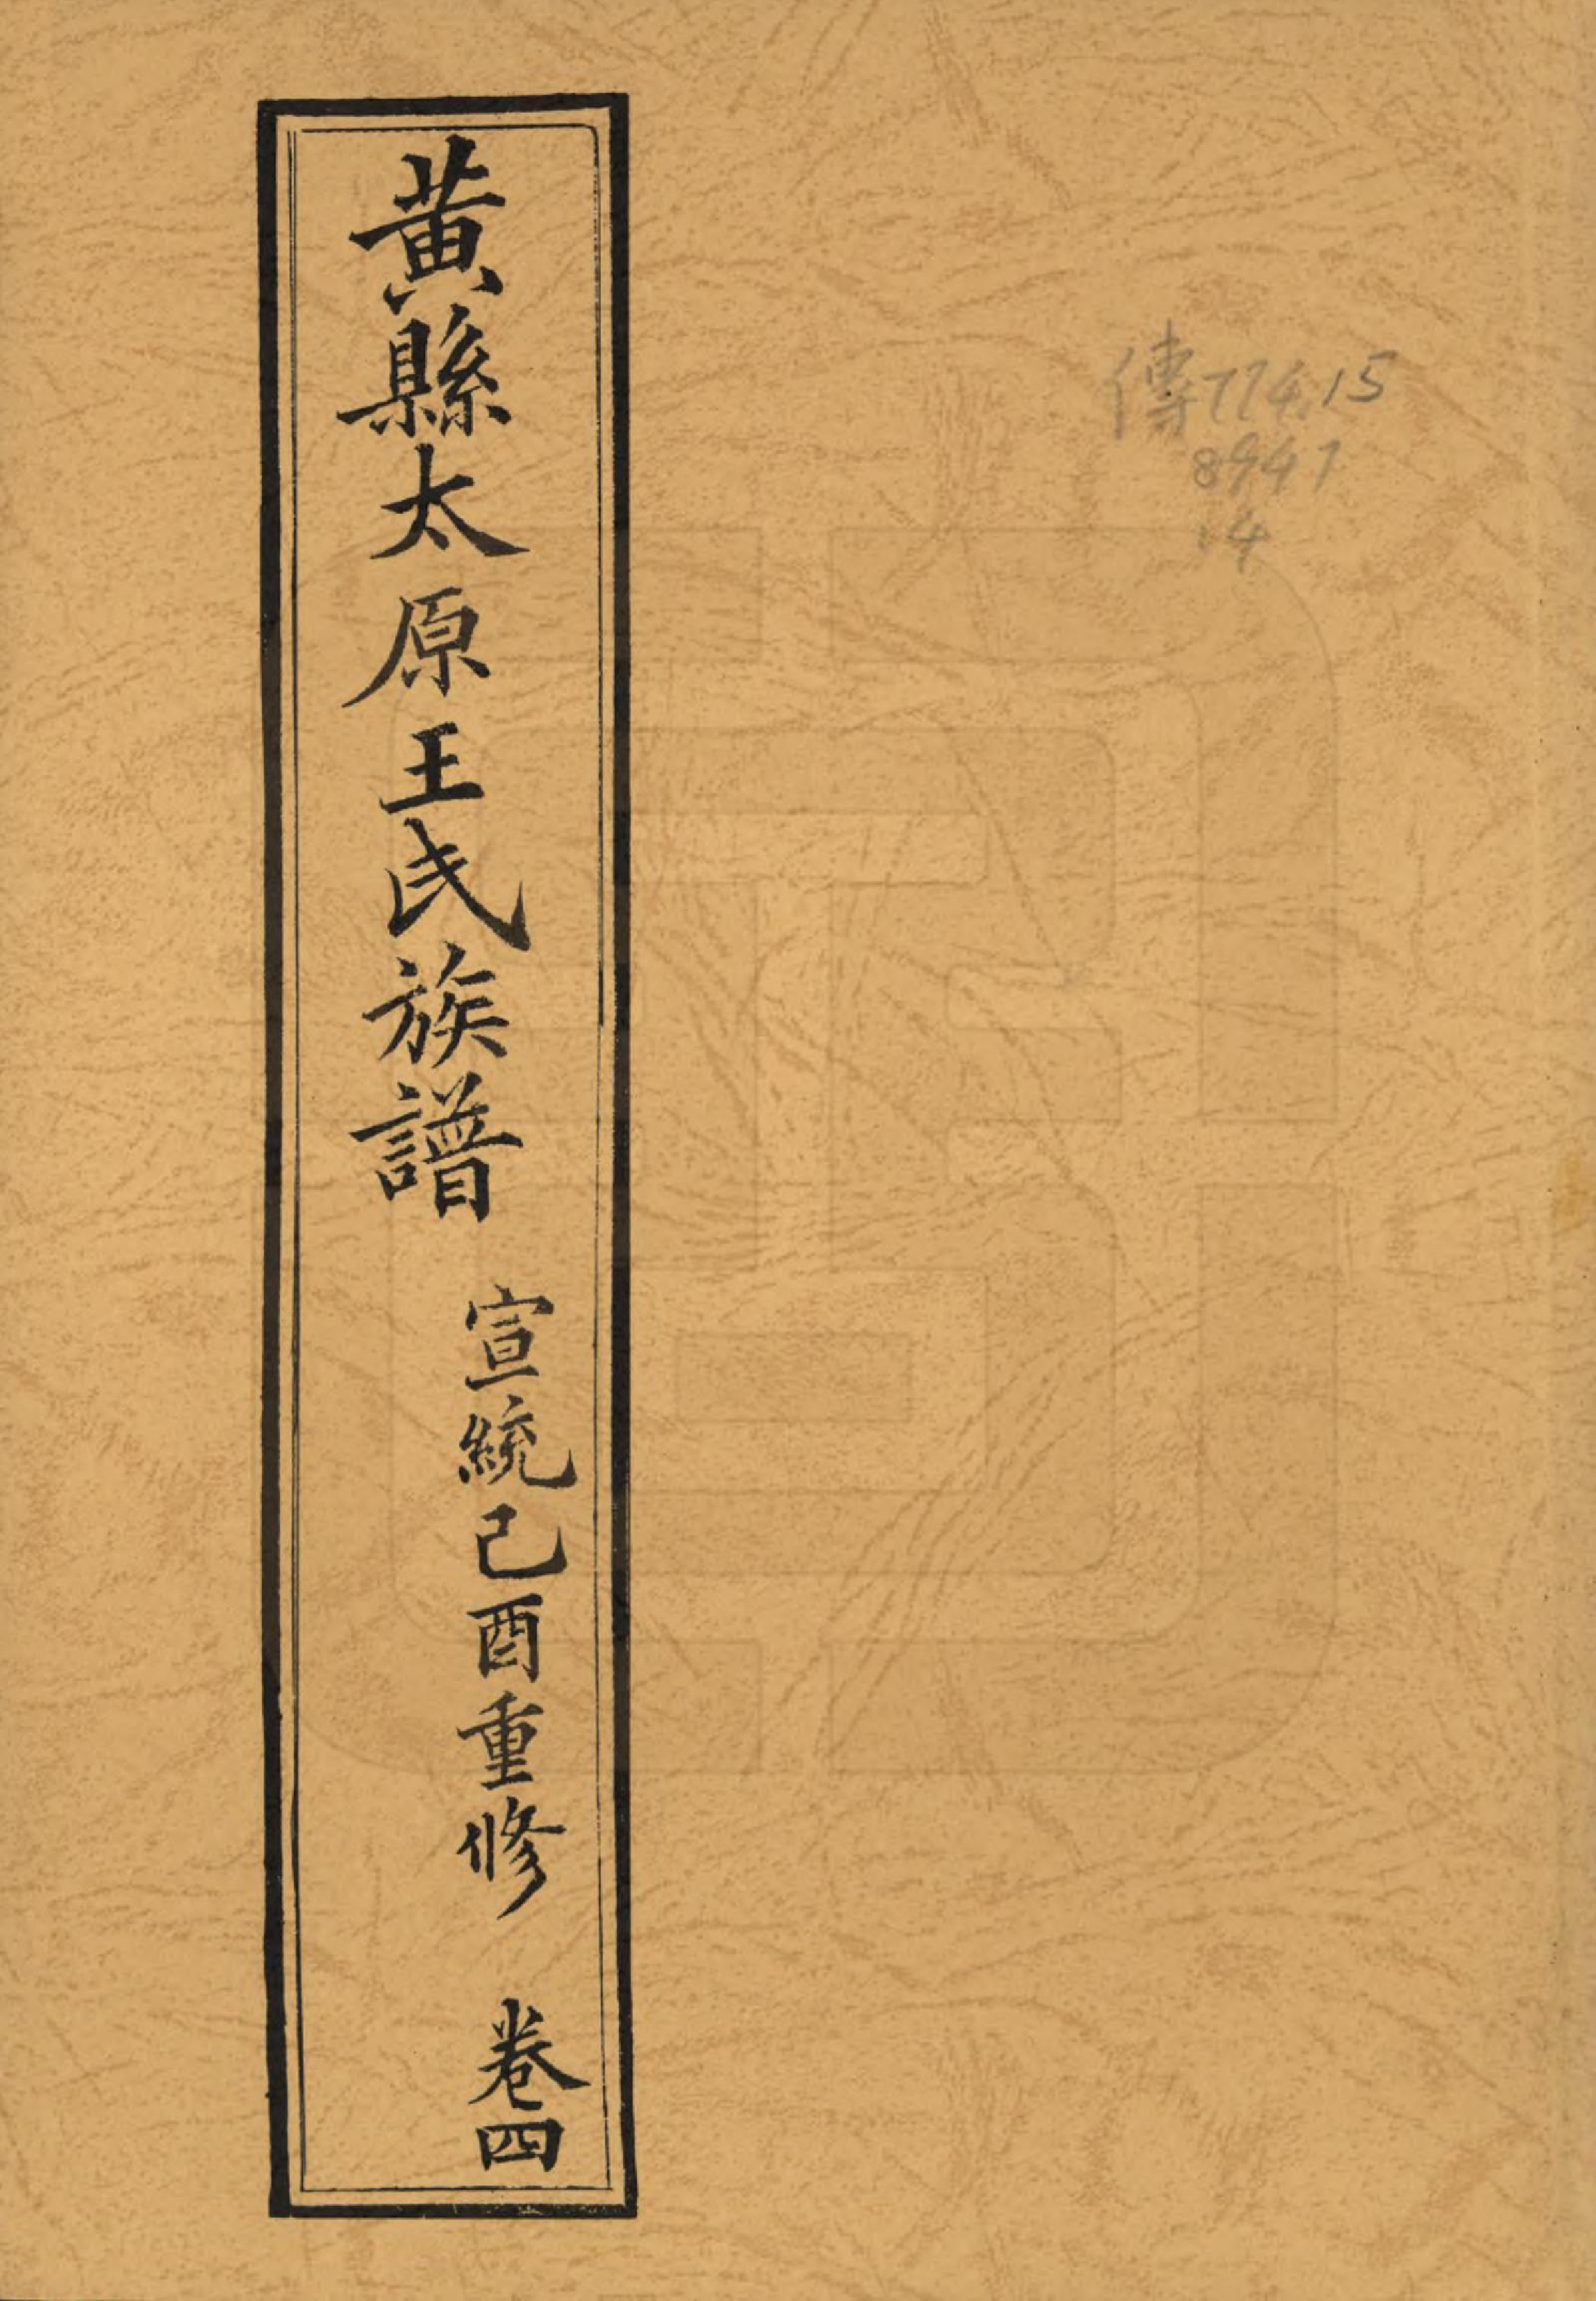 傳774.15
8941
:4
黃縣太原王氏族譜
宣統己酉重修
卷四